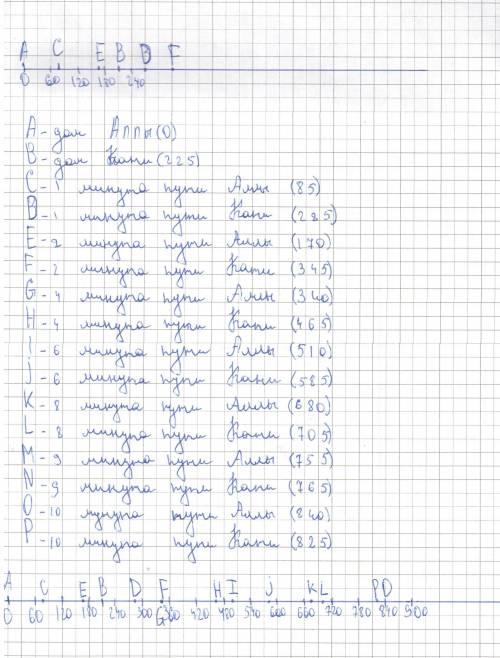 A C E B D F
0 60 120 180 240
A - дом Аллы (0)
B - дом Кати (225)
C - 1 минута пути Аллы (85)
D - 1 минута пути Кати (285)
E - 2 минута пути Аллы (170)
F - 2 минута пути Кати (345)
G - 4 минута пути Аллы (340)
H - 4 минута пути Кати (465)
I - 6 минута пути Аллы (510)
j - 6 минута пути Кати (585)
K - 8 минута пути Аллы (680)
L - 8 минута пути Кати (705)
M - 9 минута пути Аллы (755)
N - 9 минута пути Кати (765)
O - 10 минута пути Аллы (840)
P - 10 минута пути Кати (825)
A C E B D F H I j K L P O
0 60 120 180 240 300 G 360 420 480 540 600 660 720 780 840 900